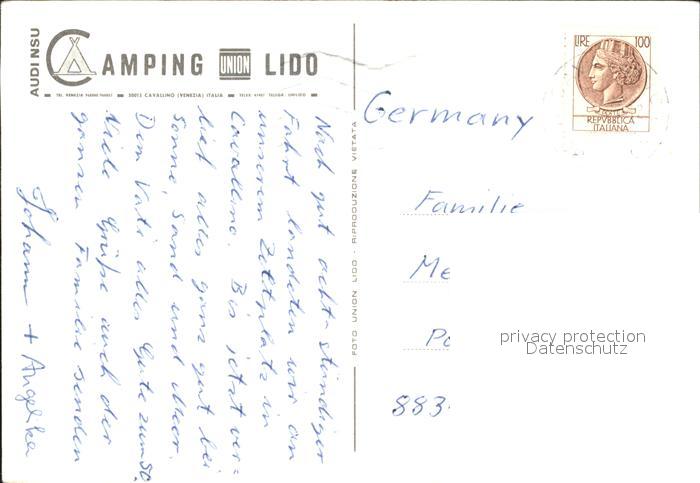 AUDI NSU
CAMPING UNION LIDO
30013 CAVALLINO (VENEZIA) ITALIA
Nach gut acht-stündiger
Fahrt landeten wir an
unserem Zeltplatz in
Cavallino. Bis jetzt ver-
lief alles ganz gut bei
Sonne, Sand und Meer.
Dem Vati alles Gute zum 50.
Viele Grüße auch der
ganzen Familie senden
Johann + Angelika
FOTO UNION LIDO - RIPRODUZIONE VIETATA
LIRE 100
REPVBBLICA
ITALIANA
Germany
Familie
Me
Po
883
privacy protection
Datenschutz